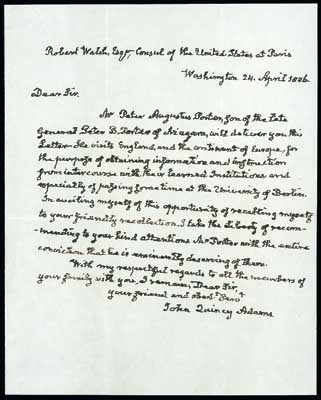 Robert Walsh, Esqr, Consul of the United States at Paris
Washington 24. April 1846.
Dear Sir.
Mr Peter Augustus Porter, son of the late
General Peter B. Porter of Niagara, will deliver you this
Letter. He visits England, and the continent of Europe, for
the purpose of obtaining information and instruction
from intercourse with their learned Institutions and
especially of passing some time at the University of Berlin.
In availing myself of this opportunity of recalling myself
to your friendly recollection, I take the liberty of recom-
-mending to your kind attentions Mr Porter with the entire
conviction that he is eminently deserving of them.
With my respectful regards to all the members of
your family with you, I remain, Dear Sir,
your friend and obedt Servt
John Quincy Adams